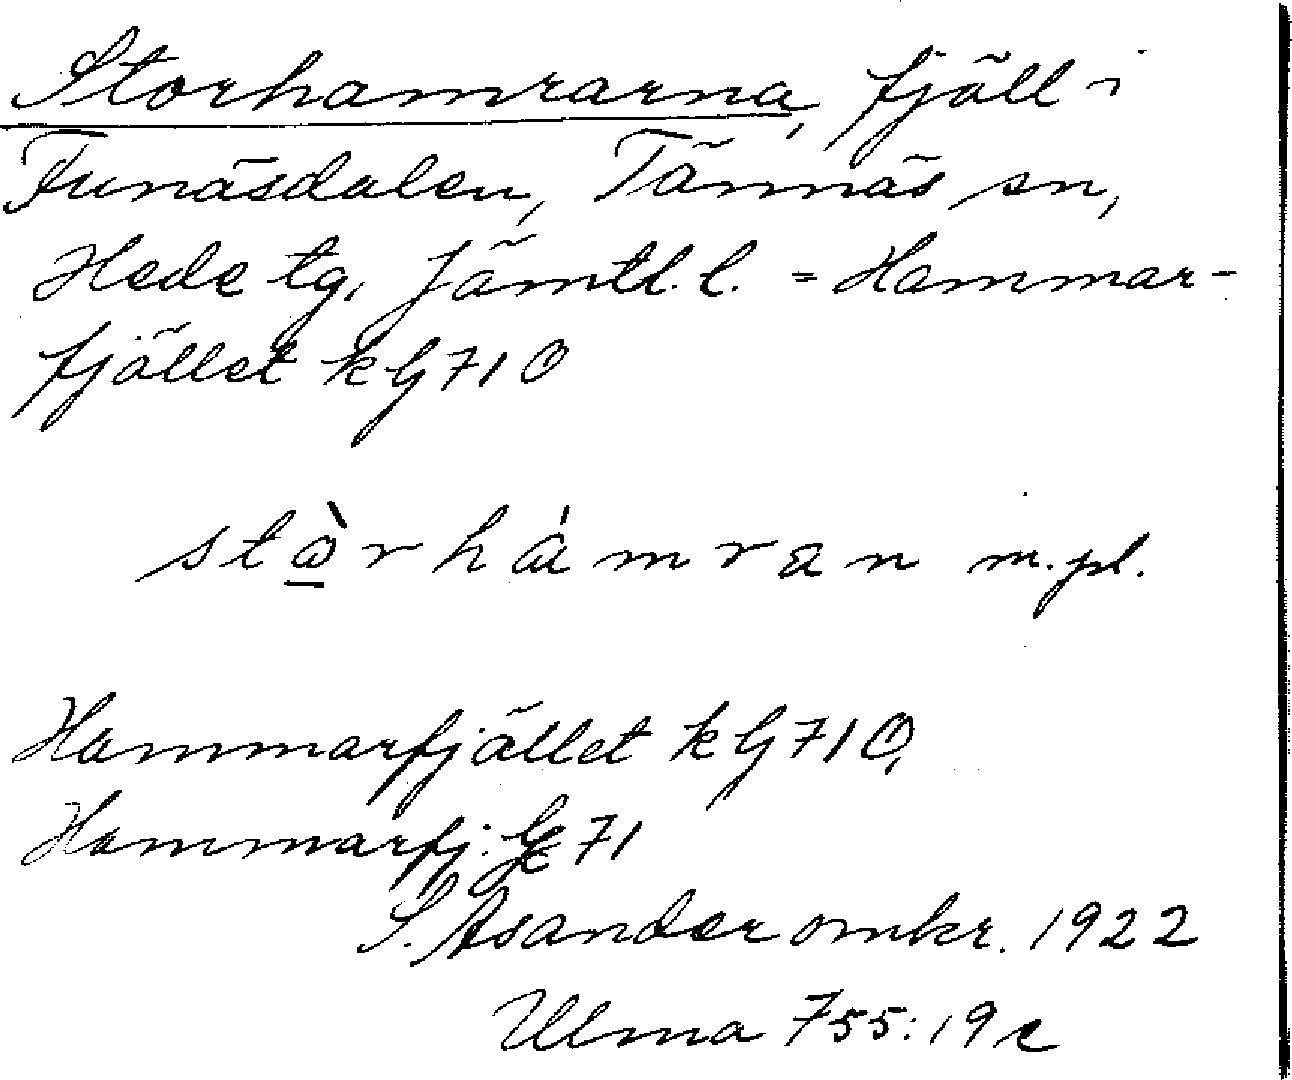 Storhamrarna, fjäll i
Funäsdalen, Tännäs sn,
Hede tg, Jämtl. l. = Hammar-
fjället kG710
stårhámran m. pl.
Hammarfjället kG710,
Hammarfj. GK 71
S. Åsander omkr. 1922
Ulma 755:19c